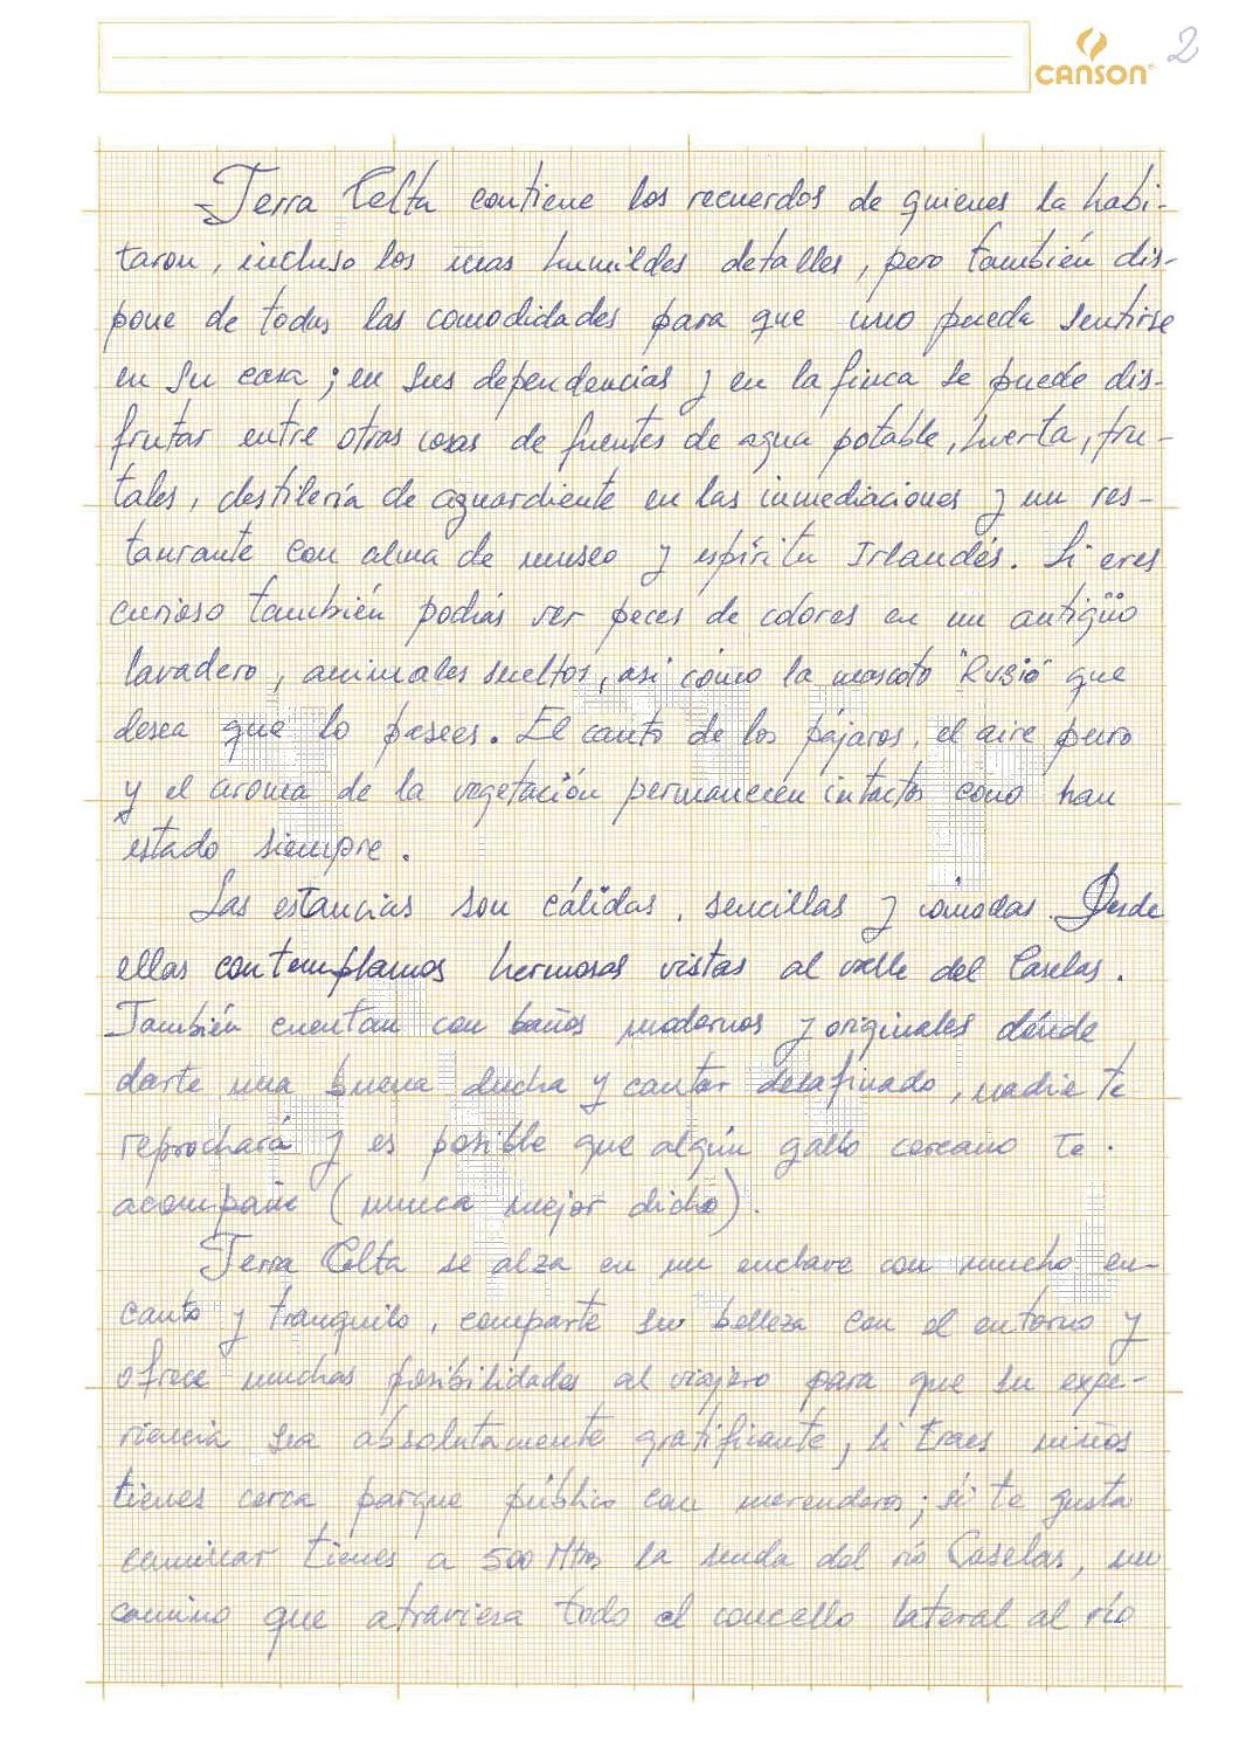 CANSON
2
Terra Celta contiene los recuerdos de quienes la habi-
taron, incluso los mas humildes detalles, pero también dis-
pone de todas las comodidades para que uno pueda sentirse
en su casa; en sus dependencias y en la finca se puede dis-
frutar entre otras cosas de fuentes de agua potable, huerta, fru-
tales, destilería de aguardiente en las inmediaciones y un res-
taurante con alma de museo y espíritu Irlandés. Si eres
curioso también podrás ver peces de colores en un antigüo
lavadero, animales sueltos, asi como la mascota "Rubio" que
desea que lo pasees. El canto de los pájaros, el aire puro
y el aroma de la vegetación permanecen intactos como han
estado siempre.
Las estancias son cálidas, sencillas y cómodas. Desde
ellas contemplamos hermosas vistas al valle del Caselas.
También cuentan con baños modernos y originales dónde
darte una buena ducha y cantar desafinado, nadie te
reprochará y es posible que algún gallo cercano te
acompañe (nunca mejor dicho).
Terra Celta se alza en un enclave con mucho en-
canto y tranquilo, comparte su belleza con el entorno y
ofrece muchas posibilidades al viajero para que su expe-
riencia sea absolutamente gratificante, si traes niños
tienes cerca parque público con merenderos; si te gusta
caminar tienes a 500 Mtros la senda del río Caselas, un
camino que atraviesa todo el concello lateral al río